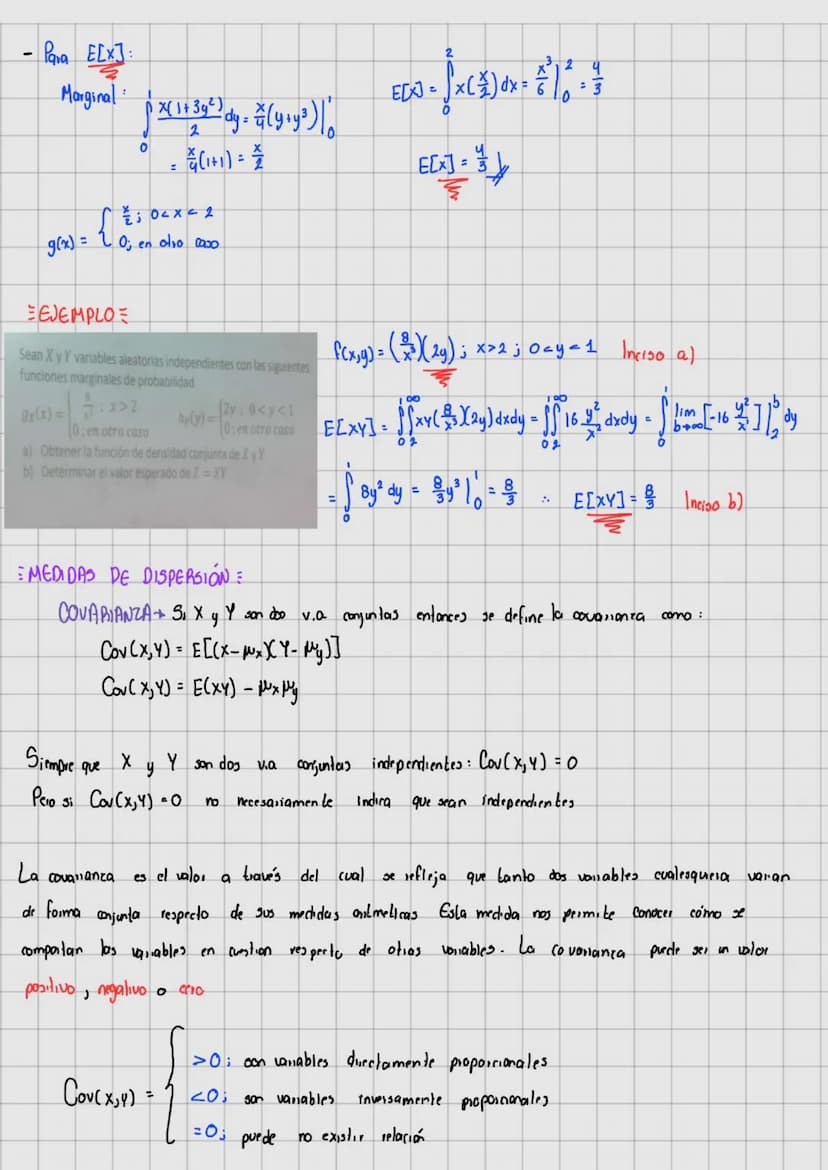 - Para E[X]:
Marginal: ∫₀¹ x(1+3y²)/2 dy = x/4 (y+y³)|₀¹
= x/4 (1+1) = x/2
g(x) = { x/2; 0<x<2
0; en otro caso
E[X] = ∫₀² x(x/2) dx = x³/6 |₀² = 4/3
E[X] = 4/3
EJEMPLO
Sean X y Y variables aleatorias independientes con las siguientes
funciones marginales de probabilidad
gx(x) = { 8/x³ ; x>2
0 ; en otro caso
hy(y) = { 2y ; 0<y<1
0 ; en otro caso
a) Obtener la función de densidad conjunta de X y Y
b) Determinar el valor esperado de Z = XY
f(x,y) = (8/x³)(2y) ; x>2 ; 0<y<1 Inciso a)
E[XY] = ∫₀¹∫₂^∞ xy(8/x³)(2y) dxdy = ∫₀¹∫₂^∞ 16 y²/x² dxdy = ∫₀¹ lim b→∞ [-16 y²/x]|₂ᵇ dy
= ∫₀¹ 8y² dy = 8/3 y³ |₀¹ = 8/3 ∴ E[XY] = 8/3 Inciso b)
MEDIDAS DE DISPERSIÓN
COVARIANZA → Si X y Y son dos v.a conjuntas entonces se define la covarianza como:
Cov(X,Y) = E[(X-μx)(Y-μy)]
Cov(X,Y) = E(XY) - μxμy
Siempre que X y Y son dos v.a conjuntas independientes: Cov(X,Y) = 0
Pero si Cov(X,Y) = 0 no necesariamente indica que sean independientes
La covarianza es el valor a través del cual se refleja que tanto dos variables cualesquiera varian
de forma conjunta respecto de sus medidas aritmeticas Esta medida nos permite conocer cómo se
comportan las variables en cuestion respecto de otras variables. La covarianza puede ser un valor
positivo, negativo o cero
Cov(X,Y) = { >0; son variables directamente proporcionales
<0; son variables inversamente proporcionales
=0; puede no existir relación